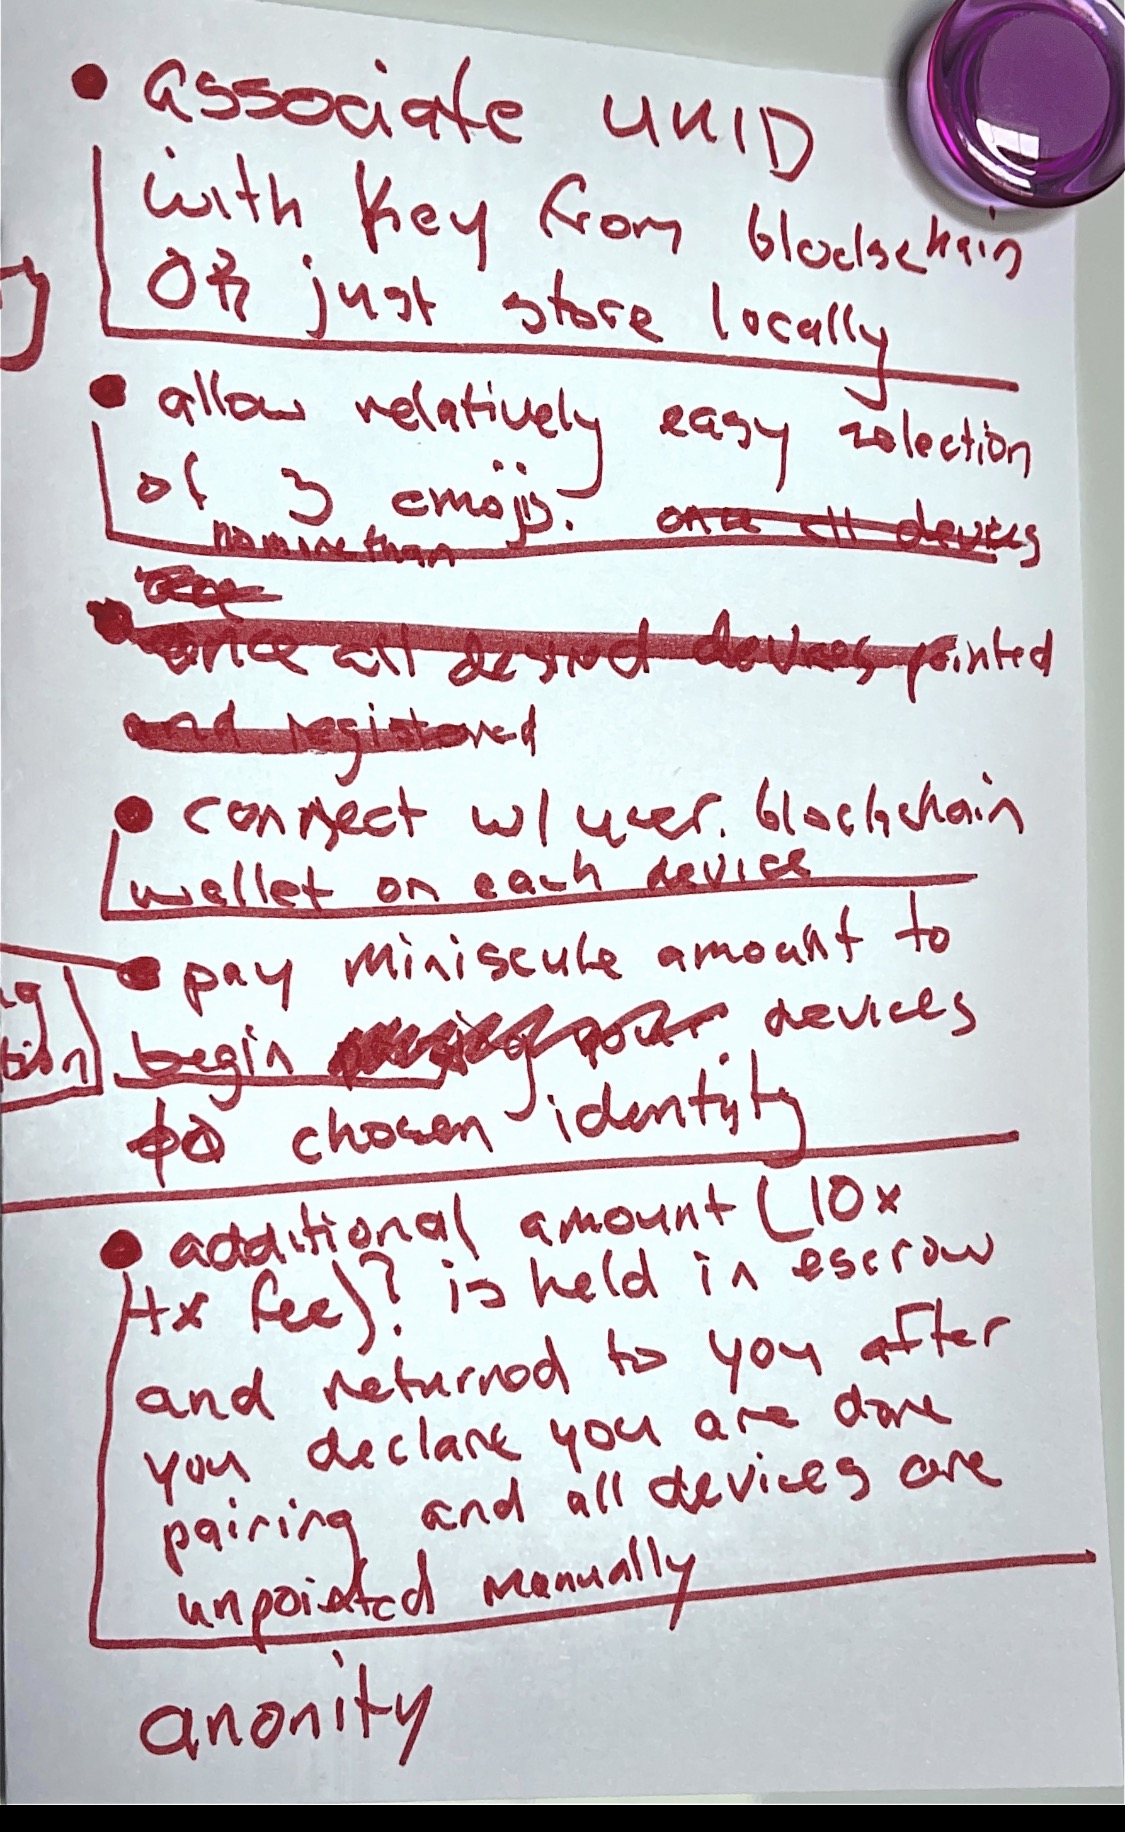 • associate UKID
with key from blockchain
OR just store locally
• allow relatively easy selection
of 3 emojis. once all devices
no more than
• once all desired devices pointed
and registered
• connect w/ user. blockchain
wallet on each device
• pay miniscule amount to
begin devices
to chosen identity
• additional amount (10x
4x fee)? is held in escrow
and returned to you after
you declare you are done
pairing and all devices are
unpointed manually
anonity